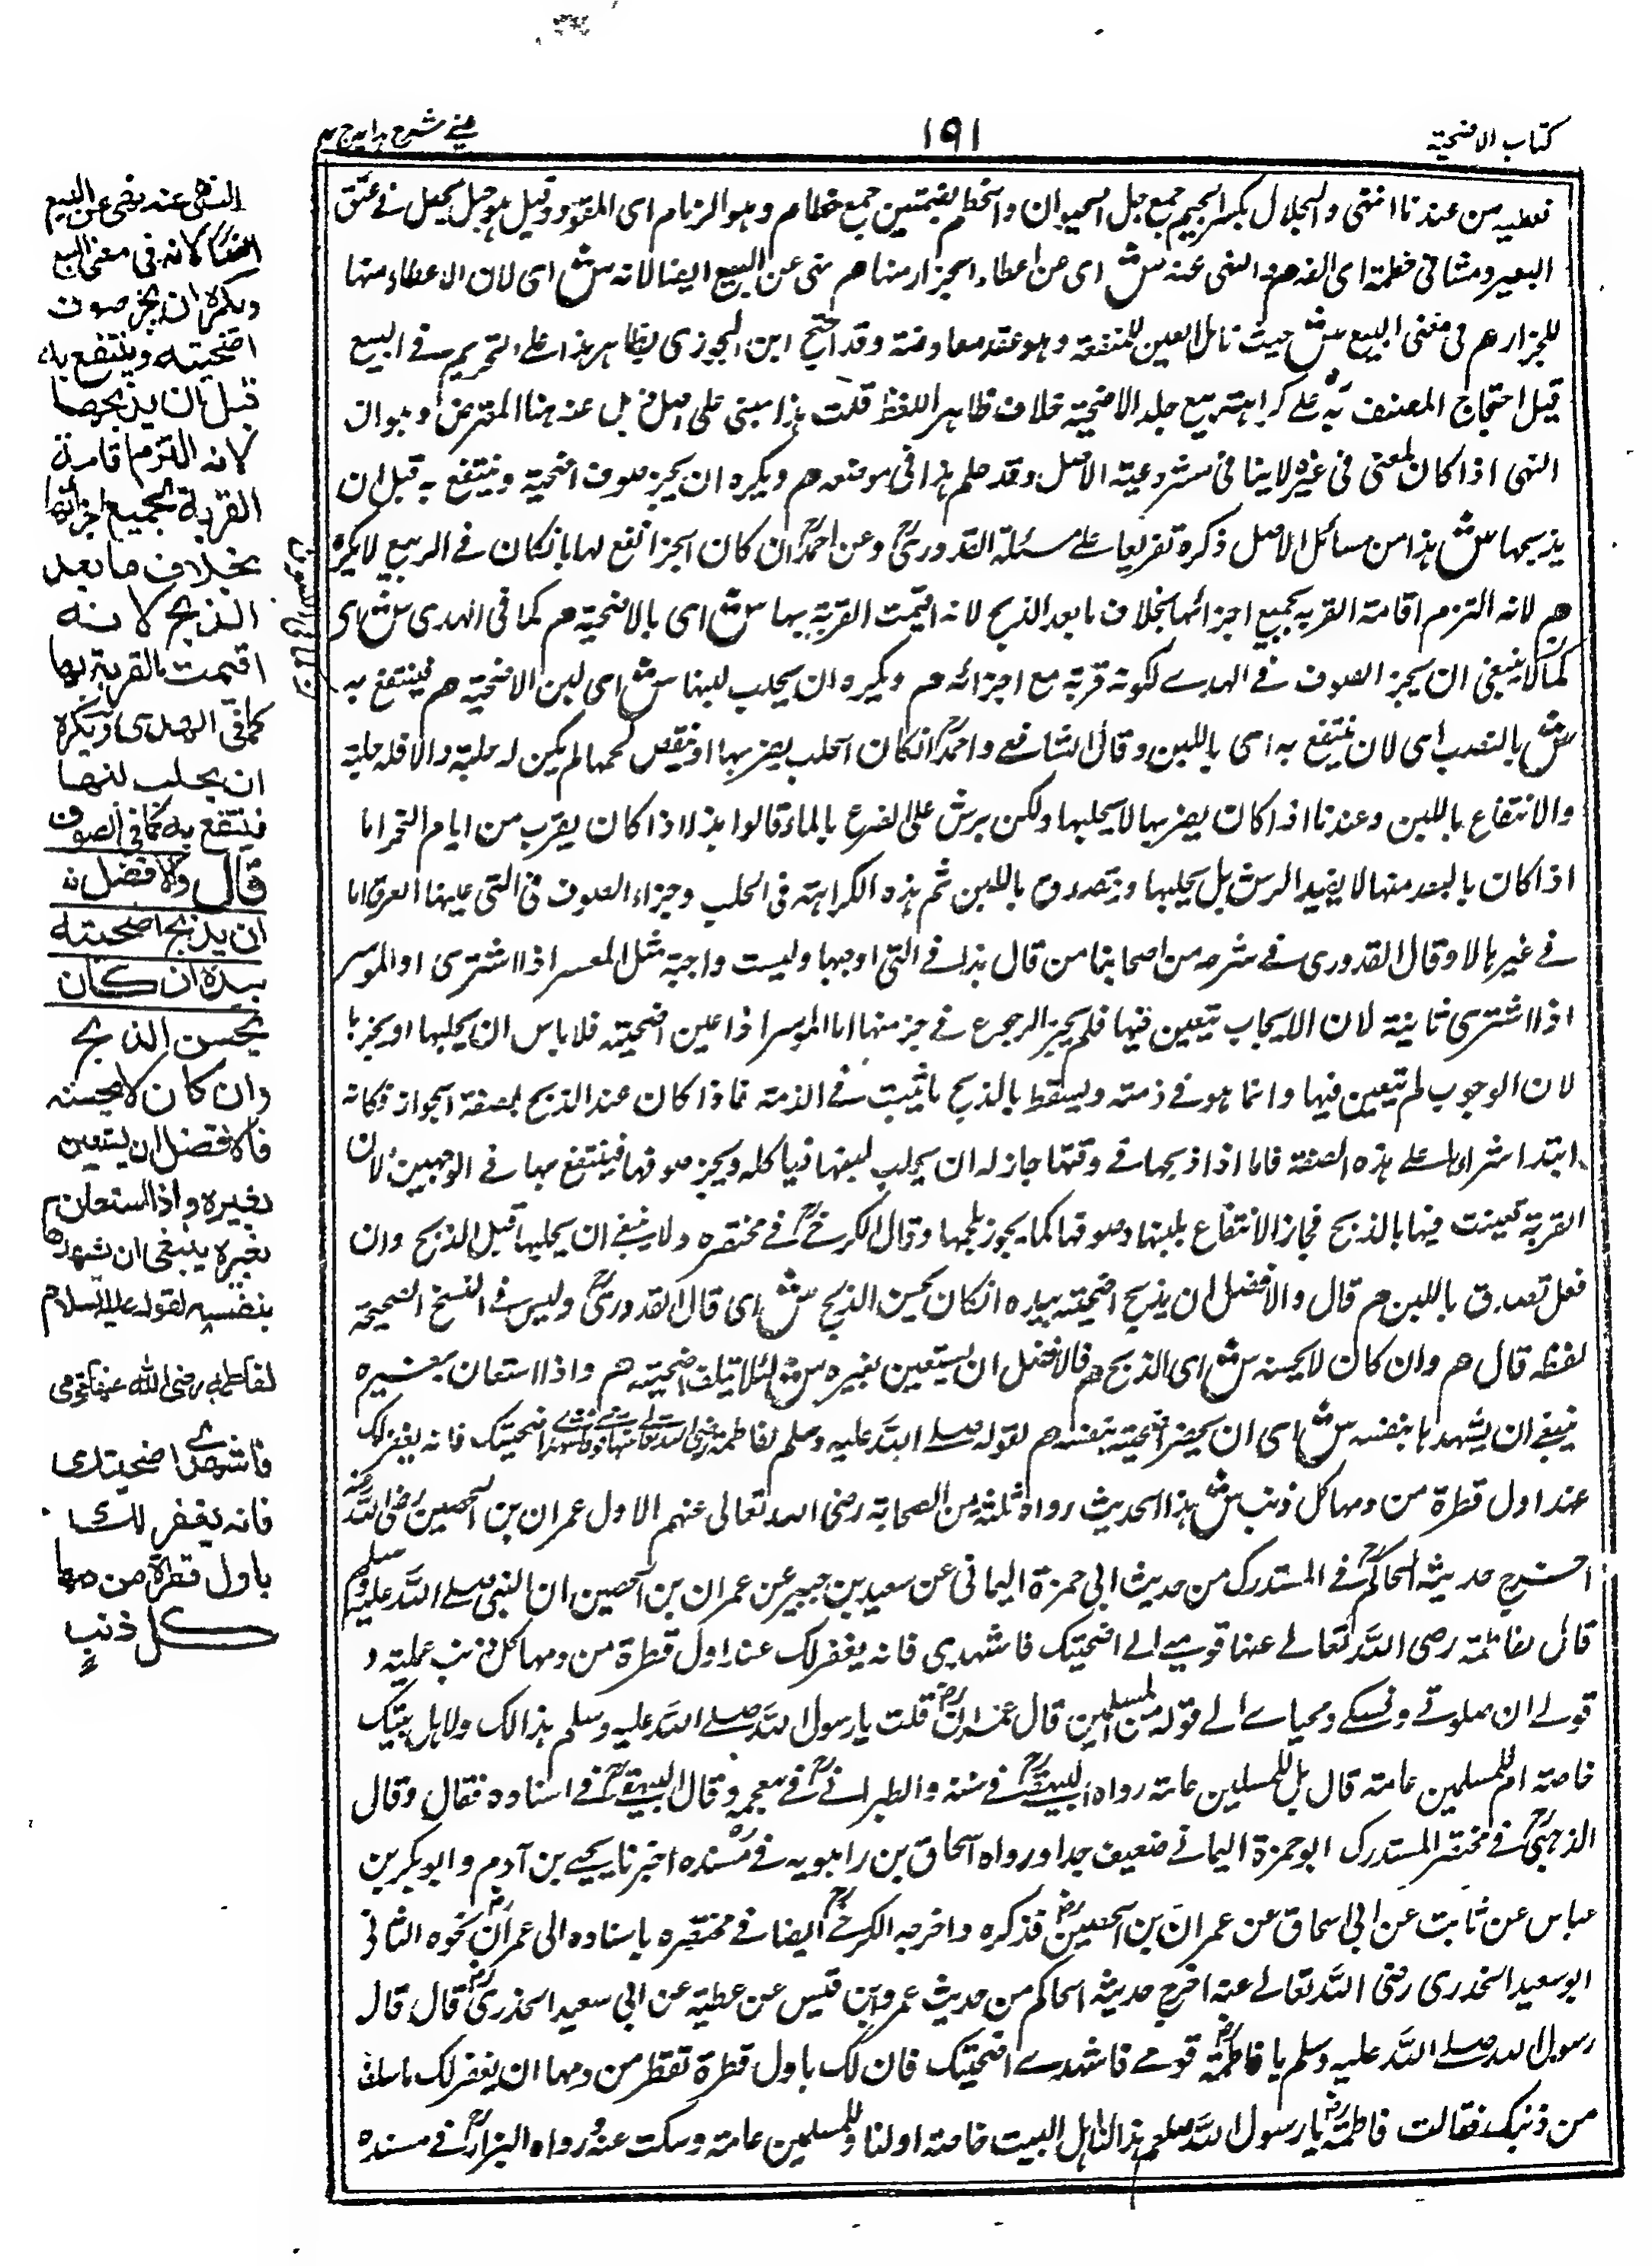 كتاب الاضحية
١٩١
عينى شرح هدايه ج ٤
نعطيه من عندنا انتهى والجلال بكسر الجيم جمع جل الحيوان والخطم بضمتين جمع خطام وهو الزمام اى المقود وقيل هو حبل يجعل فى عنق
البعير ومثنا فى خطمة اى انفه هم والنهى عنه ش اى عن اعطاء الجزار منها هم نهى عن البيع ايضا لانه ش اى لان الاعطاء منها
للجزار هم فى معنى البيع ش حيث العين للمنفعة وهو عقد معاوضة وقد احتج ابن الجوزى بظاهر هذا على التحريم فى البيع
قيل احتجاج المصنف به على كراهته بيع جلد الاضحية خلاف ظاهر اللفظ قلت هذا مبنى على اصل عنه هنا المقترض وهو ان
النهى اذا كان لمعنى فى غيره لا ينافى مشروعية الاصل وقد علم هذا فى موضعه هم ويكره ان يجز صوف اضحية وينتفع به قبل ان
يذبحها ش هذا من مسائل الاصل ذكره تفريعا على مسئلة القدورى وعن احمد ان كان الجز انفع لها بانكان فى الربيع لا يكره
هم لانه التزم اقامة القربة بجميع اجزائها بخلاف ما بعد الذبح لانه اقيمت القربة بها ش اى بالاضحية هم كما فى الهدى ش اى
كما لا ينبغى ان يجز الصوف فى الهدى لكونه قربة مع اجزائه هم ويكره ان يحلب لبنها ش اى لبن الاضحية هم فينتفع به
ش بالنصب اى لان ينتفع به اى باللبن وقال الشافعى واحمد انكان الحلب يضر بها او ينقص لحمها لم يكن له حلبه والا فله حلبه
والانتفاع باللبن وعندنا اذا كان يضر بها لا يحلبها ولكن يرش على الضرع بالماء قالوا هذا اذا كان يقرب من ايام النحر اما
اذا كان بالبعد منها لا يفيد الرش بل يحلبها ويتصدق باللبن ثم هذه الكراهة فى الحلب وجزاء الصوف فى التى عليها العرق اما
فى غيرها لا وقال القدورى فى شرحه من اصحابنا من قال هذا فى التى اوجبها وليست واجبة مثل المعسر اذا اشترى او الموسر
اذا اشترى ثانية لان الايجاب تتعين فيها فلم يجز الرجوع فى جز منها اما الموسر اذا عين اضحيته فلا باس ان يحلبها او يجزها
لان الوجوب لم يتعين فيها وانما هو فى ذمته ويسقط بالذبح ما ثبت فى الذمة فاذا كان عند الذبح بصفة الجواز فكانه
ابتدا شراءها على هذه الصفة فاما اذا ذبحها فى وقتها جاز له ان يحلب لبنها فياكله ويجز صوفها فينتفع بها فى الوجهين لان
القربة تعينت فيها بالذبح فجاز الانتفاع بلبنها وصوفها كما يجوز بلحمها وقال الكرخى فى مختصره ولا ينبغى ان يحلبها قبل الذبح وان
فعل تصدق باللبن م قال والافضل ان يذبح اضحيته بيده انكان يحسن الذبح ش اى قال القدورى وليس فى النسخ الصحيحة
لفظه قال هم وان كان لا يحسنه ش اى الذبح هم فالافضل ان يستعين بغيره ش لئلا يتلف اضحيته هم واذا استعان بغيره
ينبغى ان يشهدها بنفسه ش اى ان يحضر اضحيته بنفسه هم لقوله صلى الله عليه وسلم لفاطمة رضى الله تعالى عنها قومى فاشهدى اضحيتك فانه يغفر لك
عند اول قطرة من دمها كل ذنب ش هذا الحديث رواه ثلثة من الصحابة رضى الله تعالى عنهم الاول عمران بن الحصين رضى الله عنه
اخرج حديثه الحاكم فى المستدرك من حديث ابى حمزة اليمانى عن سعيد بن جبير عن عمران بن الحصين ان النبى صلى الله عليه وسلم
قال لفاطمة رضى الله تعالى عنها قومى الى اضحيتك فاشهدى فانه يغفر لك عند اول قطرة من دمها كل ذنب عملته و
قولى ان صلوتى ونسكى ومحياى الى قوله من المسلمين قال عمران قلت يا رسول الله صلى الله عليه وسلم هذا لك ولاهل بيتك
خاصة ام للمسلمين عامة قال بل للمسلمين عامة رواه البيهقى فى سننه والطبرانى فى معجمه وقال البيهقى فى اسناده فقال وقال
الذهبى فى مختصر المستدرك ابو حمزة اليمانى ضعيف جدا ورواه اسحاق بن راهويه فى مسنده اخبرنا يحيى بن آدم وابو بكر بن
عباس عن ثابت عن ابى اسحاق عن عمران بن الحصين فذكره واخرجه الكرخى ايضا فى مختصره باسناده الى عمران نحوه الثانى
ابو سعيد الخدرى رضى الله تعالى عنه اخرج حديثه الحاكم من حديث عمرو بن قيس عن عطية عن ابى سعيد الخدرى قال قال
رسول الله صلى الله عليه وسلم يا فاطمة قومى فاشهدى اضحيتك فان لك باول قطرة تقطر من دمها ان يغفر لك ما سلف
من ذنبك فقالت فاطمة يا رسول الله صلعم هذا لنا اهل البيت خاصة او لنا وللمسلمين عامة وسكت عنه ورواه البزار فى مسنده
النهى عنه نهى عن البيع
ايضا لانه فى معنى البيع
ويكره ان يجز صوف
اضحيته وينتفع به
قبل ان يذبحها
لانه التزم اقامة
القربة بجميع اجزائها
بخلاف ما بعد
الذبح لانه
اقيمت القربة بها
كما فى الهدى ويكره
ان يحلب لبنها
فينتفع به كما فى الصوف
قال والافضل
ان يذبح اضحيته
بيده ان كان
يحسن الذبح
وان كان لا يحسنه
فالافضل ان يستعين
بغيره واذا استعان
بغيره ينبغى ان يشهدها
بنفسه لقوله عليه السلام
لفاطمة رضى الله عنها قومى
فاشهدى اضحيتك
فانه يغفر لك
باول قطرة من دمها
كل ذنب